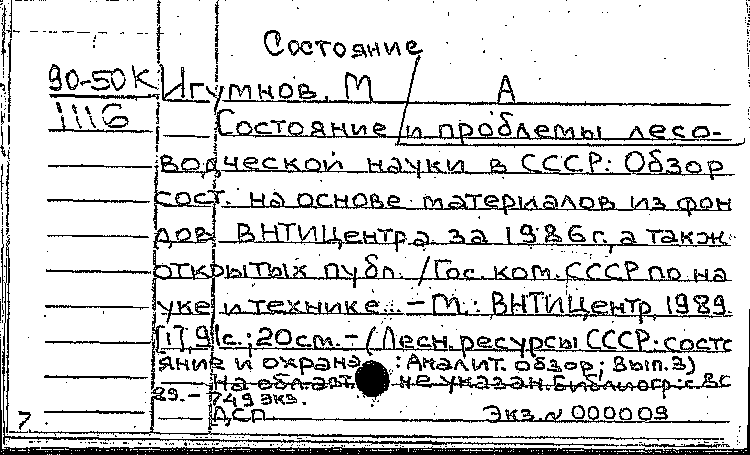 Состояние
90-50К Игумнов. М А
1116 Состояние и проблемы лесо-
водческой науки в СССР: Обзор
сост. на основе материалов из фон
дов ВНТИЦентра за 1986 г., а такж
открытых публ. /Гос. ком. СССР по на
уке и технике. - М.: ВНТИЦентр, 1989
91с.; 20см. - (Лесн. ресурсы СССР: состо
яние и охрана : Аналит. обзор; Вып. 3)
На обл. авт. не указан. Библиогр.: с.
89. - 749 экз.
ДСП Экз. N 000009
7